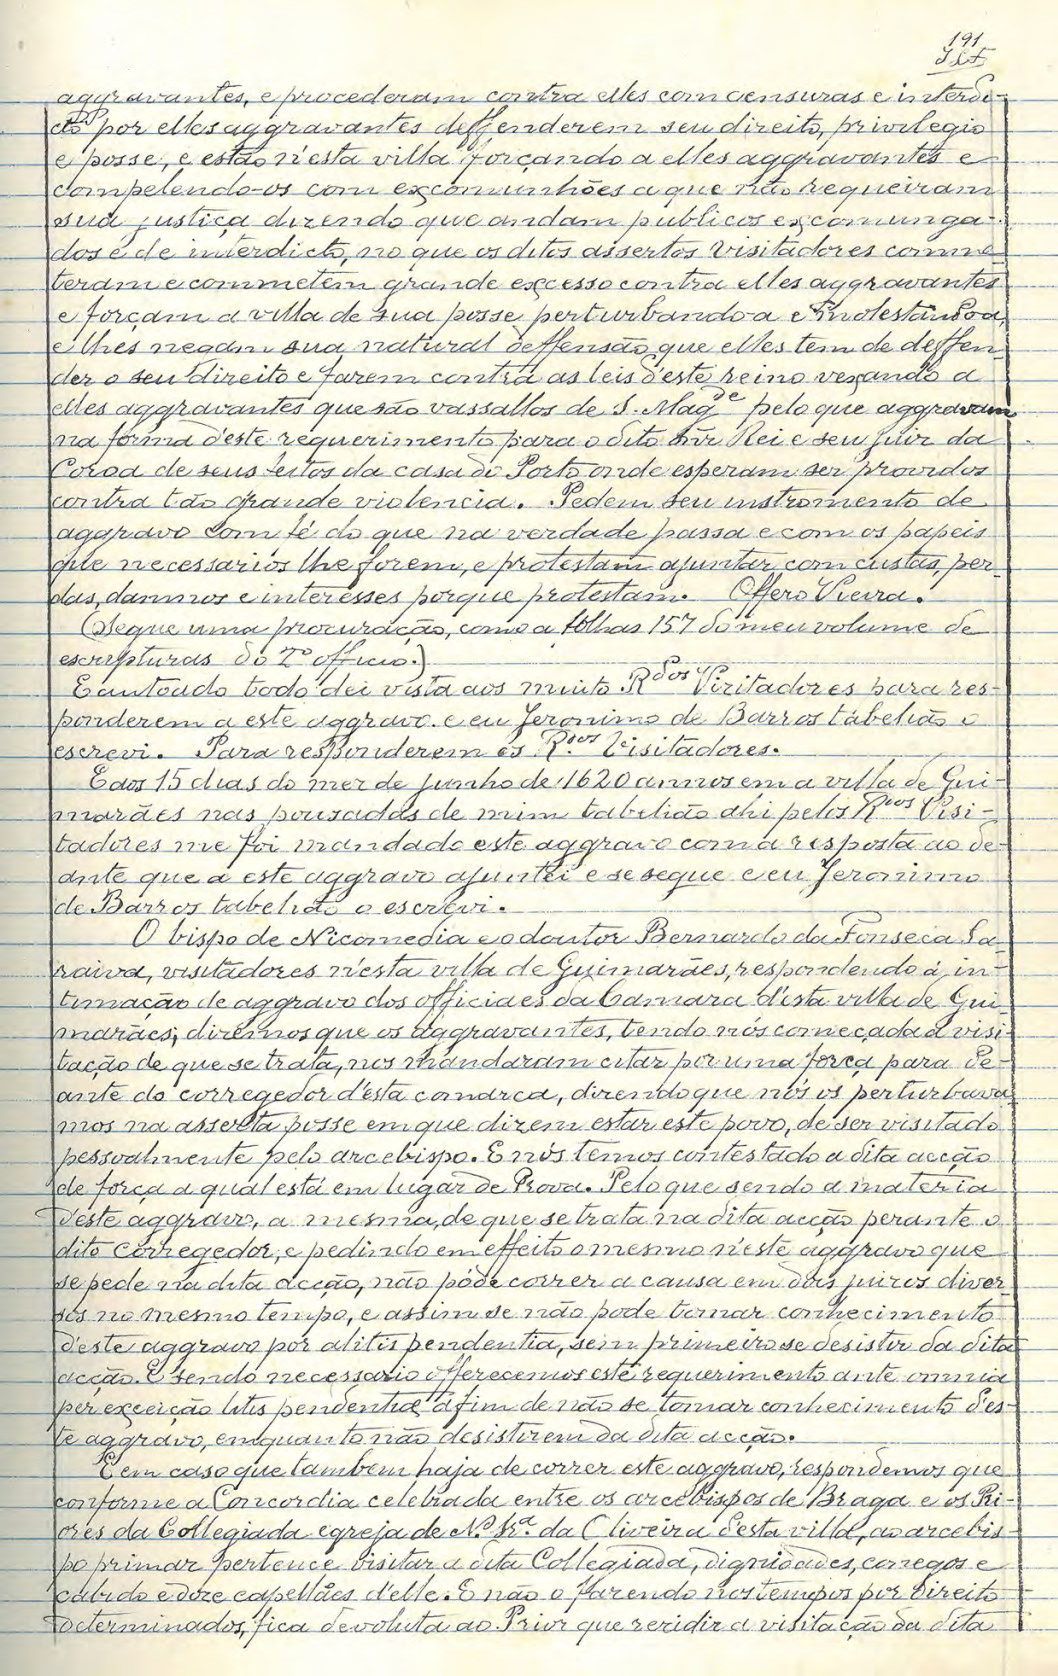 191
aggravantes, e procederam contra elles com censuras e interdi-
cto por elles aggravantes deffenderem seu direito, privilegio
e posse, e estão n'esta villa forçando a elles aggravantes e
compelendo-os com exçomunhões a que não requeiram
sua justiça dizendo que andam publicos exçomunga-
dos e de interdicto, no que os ditos assertos Visitadores comme-
teram e commetem grande exçesso contra elles aggravantes
e forçam a villa de sua posse perturbando-a e molestando-a,
e lhes negam sua natural deffensão que elles tem de deffen-
der o seu direito e fazem contra as leis d'este reino vexando a
elles aggravantes que são vassallos de S. Mag.de pelo que aggravam
na forma d'este requerimento para o dito snr Rei e seu juiz da
Coroa de seus feitos da casa do Porto onde esperam ser providos
contra tão grande violencia. Pedem seu instromento de
aggravo com fé do que na verdade passa e com os papeis
que necessarios lhe forem, e protestam ajuntar, com custas, per-
das, damnos e interesses porque protestam. Offero Vieira.
(Segue uma procuração, como a folhas 157 do meu volume de
escripturas do 2º officio.)
E autoado todo dei vista aos muito R.dos Vizitadores para res-
ponderem a este aggravo e eu Jeronimo de Barros tabelião o
escrevi. Para responderem os R.dos Visitadores.
E aos 15 dias do mez de junho de 1620 annos em a villa de Gui-
marães nas pousadas de mim tabelião ahi pelos R.dos Visi-
tadores me foi mandado este aggravo com a resposta ao de-
ante que a este aggravo ajuntei e se segue e eu Jeronimo
de Barros tabelião o escrevi.
O bispo de Nicomedia e o doutor Bernardo da Fonseca Sa-
raiva, visitadores n'esta villa de Guimarães, respondendo á in-
timação de aggravo dos officiaes da Camara d'esta villa de Gui-
marães, dizemos que os aggravantes, tendo nós começada a visi-
tação de que se trata, nos mandaram citar por uma força para de-
ante do corregedor d'esta comarca, dizendo que nós os perturbava-
mos na asserta posse em que dizem estar este povo, de ser visitado
pessoalmente pelo arcebispo. E nós temos contestado a dita acção
de força a qual está em lugar de Prova. Pelo que sendo a materia
d'este aggravo, a mesma, de que se trata na dita acção perante o
dito corregedor, e pedindo em effeito o mesmo n'este aggravo que
se pede na dita acção, não póde correr a causa em dois juizos diver-
sos no mesmo tempo, e assim se não pode tomar conhecimento
d'este aggravo por alitis pendentia, sem primeiro se desistir da dita
acção. E sendo necessario offerecemos este requerimento ante omnia
per exçeição litis pendentiæ afim de não se tomar conhecimento d'es-
te aggravo, emquanto não desistirem da dita acção.
E em caso que tambem haja de correr este aggravo, respondemos que
conforme a Concordia celebrada entre os arcebispos de Braga e os Pri-
ores da Collegiada egreja de N.ª Sr.ª da Oliveira d'esta villa, ao arcebis-
po primaz pertence visitar a dita Collegiada, dignidades, conegos e
cabido e doze capellães d'elle. E não o fazendo nos tempos por direito
determinados, fica devoluta ao Prior que rezidir a visitação da dita